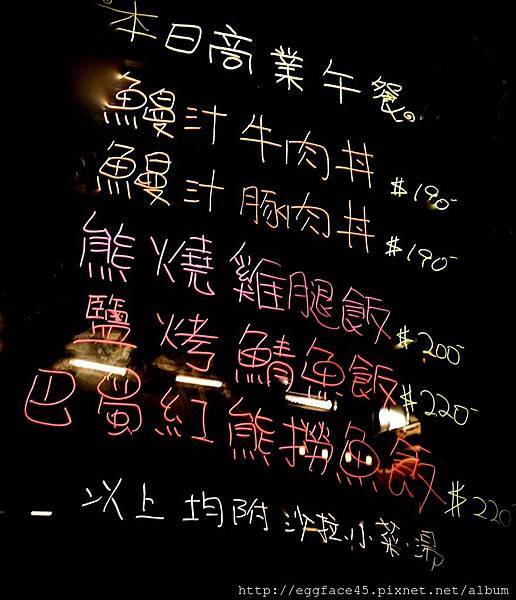 本日商業午餐。
鰻汁牛肉丼 $190-
鰻汁豚肉丼 $190-
熊燒雞腿飯 $200-
鹽烤鯖魚飯 $220-
巴蜀紅熊撈魚飯 $220
以上均附沙拉.小菜.湯
http://eggface45.pixnet.net/album